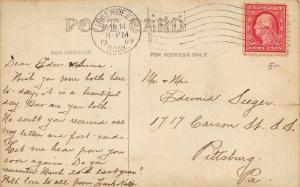 POST CARD
ABERDEEN
MAR 14
-PM
19 09
FOR MESSAGE
FOR ADDRESS ONLY
5-
Dear Edw & Anna.
Wish you were both here
to-day, it is a beautiful
day. How are you both.
No doubt you received all
my letters and post-cards.
Let me hear from you
soon again. Do you
remember March 20th last year?
With love to all from
Mr & Mrs.
Edward Seeger.
1717 Carson St. S.S.
Pittsburg
Pa.